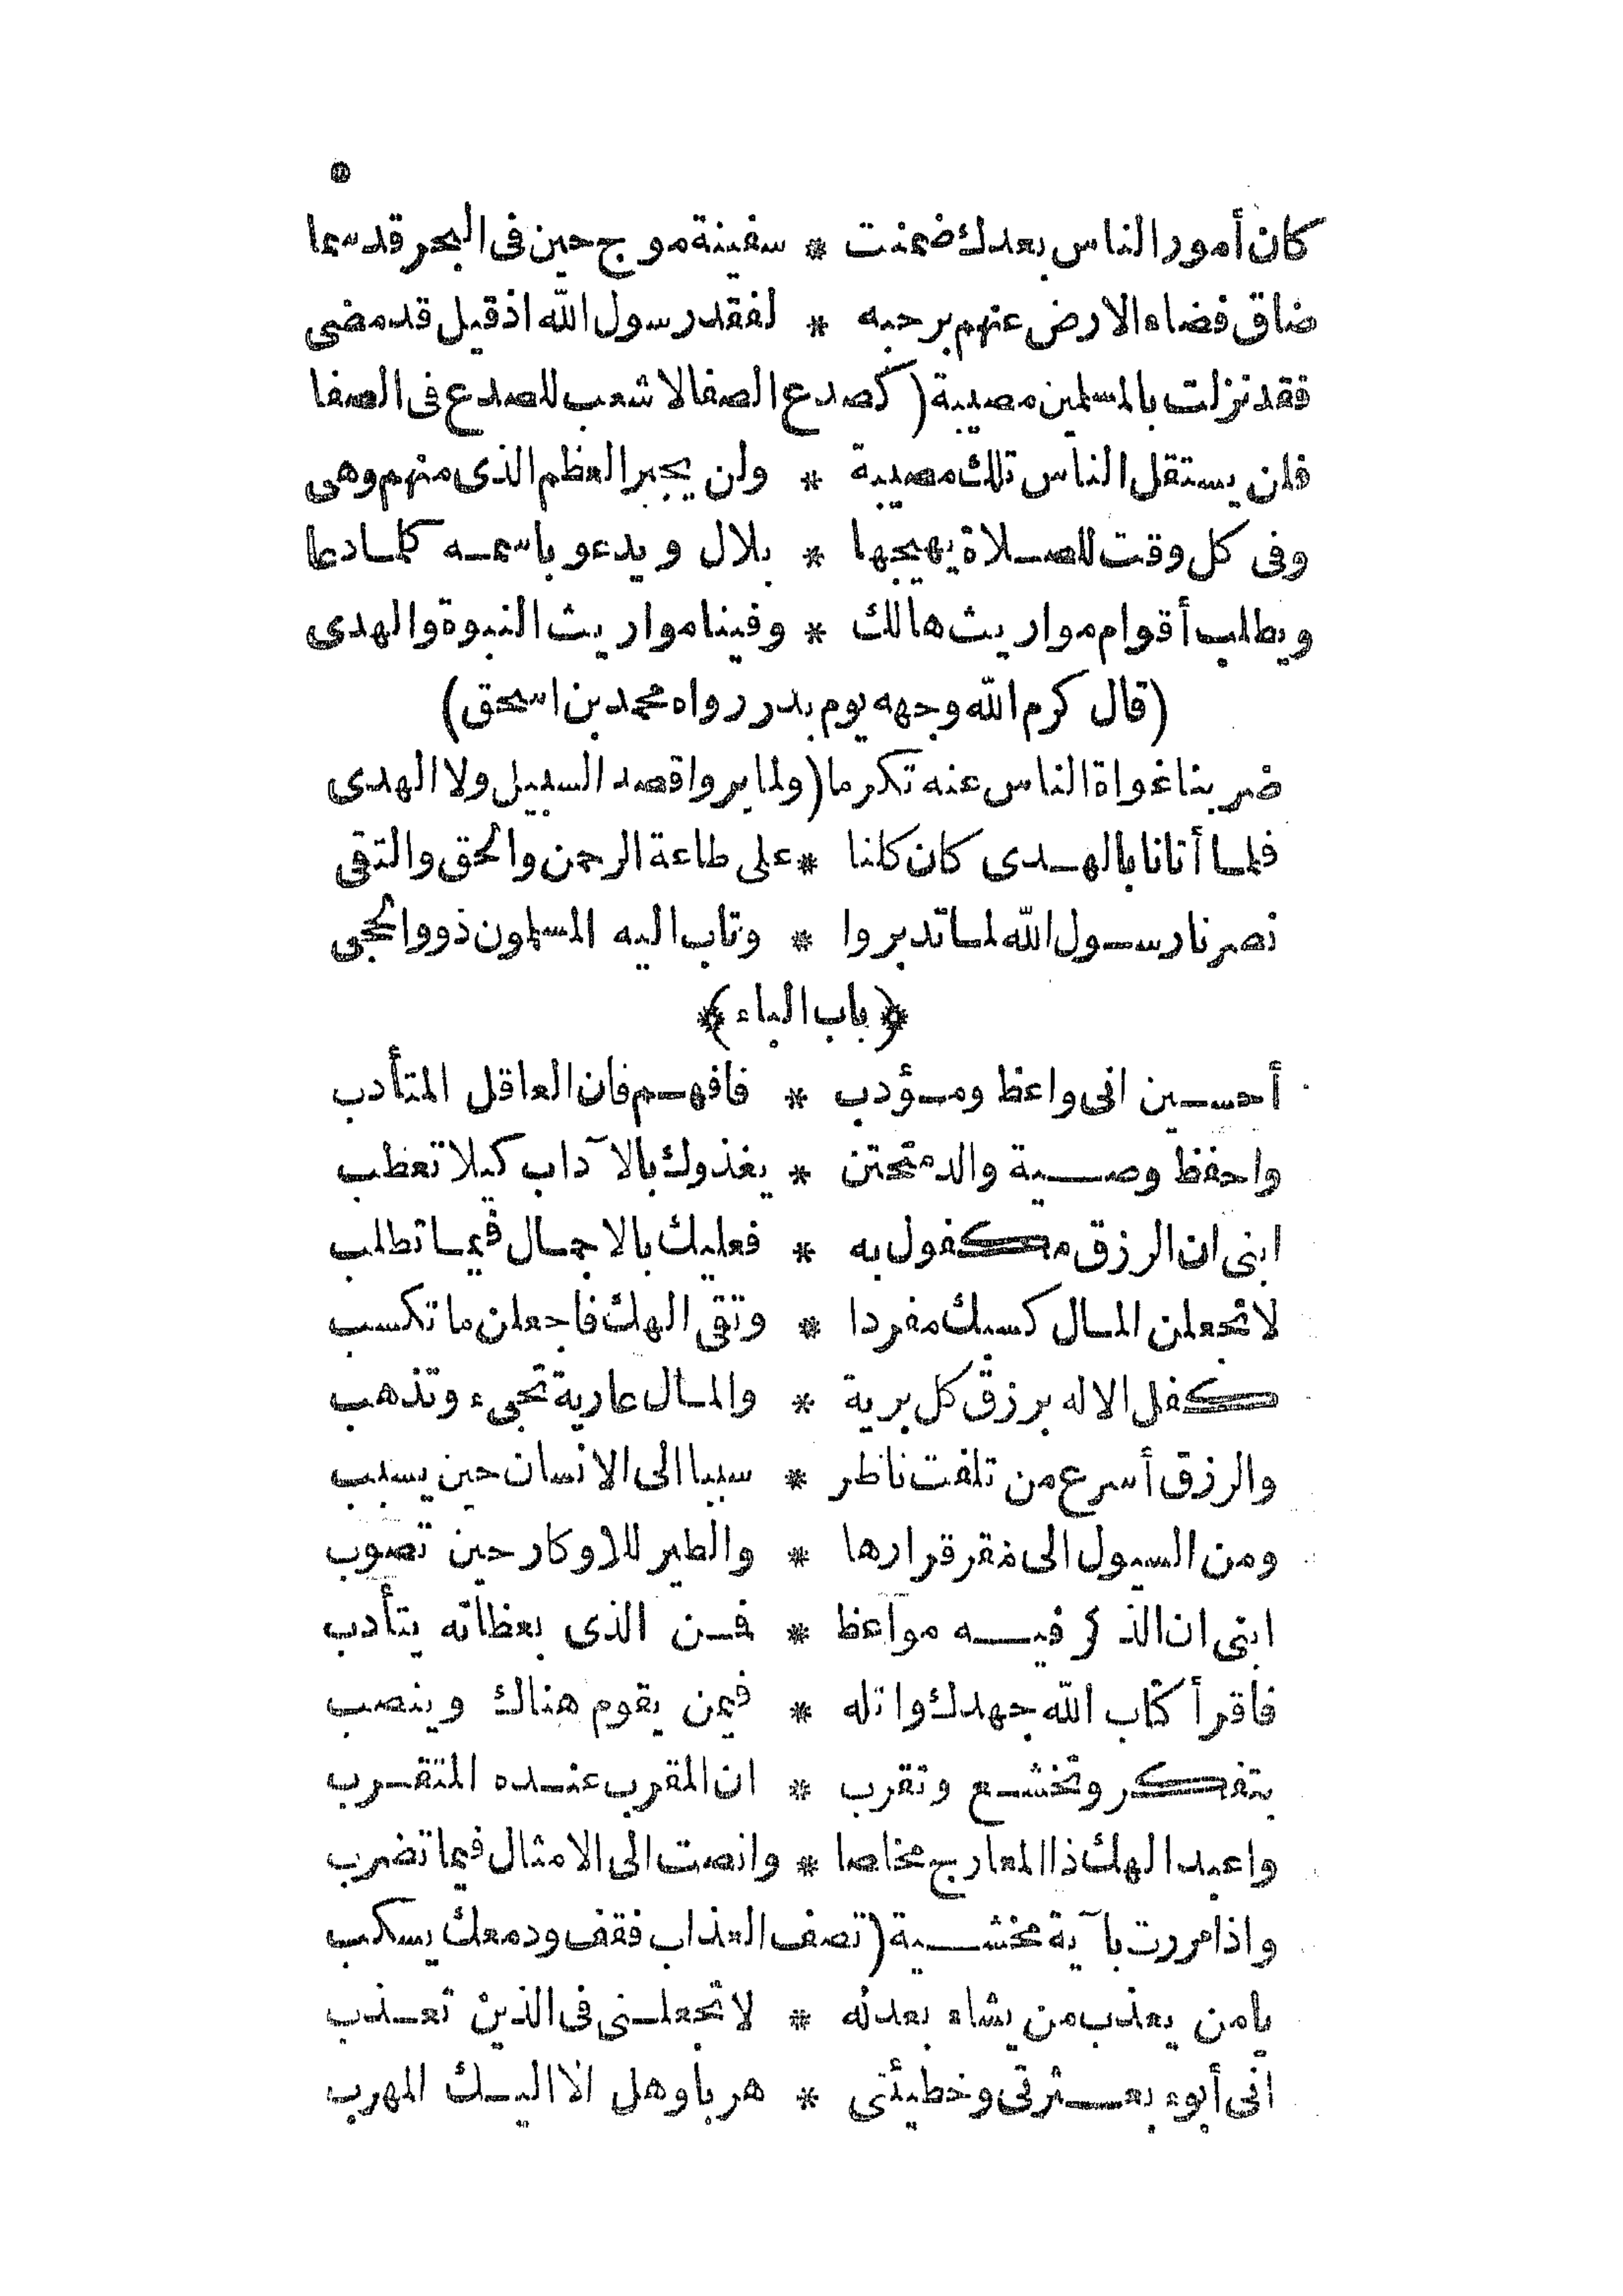 ٥
كان أمور الناس بعدك ضمنت * سفينة موج حين فى البحر قد سما
ضاق فضاء الارض عنهم برحبه * لفقد رسول الله اذ قيل قد مضى
فقد نزلت بالمسلمين مصيبة (كصدع الصفا لا شعب للصدع فى الصفا
فلن يستقل الناس تلك مصيبة * ولن يجبر العظم الذى منهم وهى
وفى كل وقت للصلاة يهيجها * بلال ويدعو باسمه كلما دعا
ويطلب أقوام مواريث هالك * وفينا مواريث النبوة والهدى
(قال كرم الله وجهه يوم بدر رواه محمد بن اسحق)
ضربنا غواة الناس عنه تكرما (ولما يروا قصد السبيل ولا الهدى
فلما أتانا بالهدى كان كلنا * على طاعة الرحمن والحق والتقى
نصرنا رسول الله لما تدبروا * وتاب اليه المسلمون ذوو الحجى
﴿باب الباء﴾
أحسين انى واعظ ومؤدب * فافهم فان العاقل المتأدب
واحفظ وصية والد متحنن * يغذوك بالآداب كيلا تعطب
ابنى ان الرزق مكفول به * فعليك بالاجمال فيما تطلب
لا تجعلن المال كسبك مفردا * وتقى الهك فاجعلن ما تكسب
كفل الاله برزق كل برية * والمال عارية تجىء وتذهب
والرزق أسرع من تلفت ناظر * سببا الى الانسان حين يسبب
ومن السيول الى مقر قرارها * والطير للاوكار حين تصوب
ابنى ان الذكر فيه مواعظ * فمن الذى بعظاته يتأدب
فاقرأ كتاب الله جهدك واتله * فيمن يقوم هناك وينصب
بتفكر وتخشع وتقرب * ان المقرب عنده المتقرب
واعبد الهك ذا المعارج مخلصا * وانصت الى الامثال فيما تضرب
واذا مررت بآية مخشية (تصف العذاب فقف ودمعك يسكب
يا من يعذب من يشاء بعدله * لا تجعلنى فى الذين تعذب
انى أبوء بعثرتى وخطيئتى * هربا وهل الا اليك المهرب